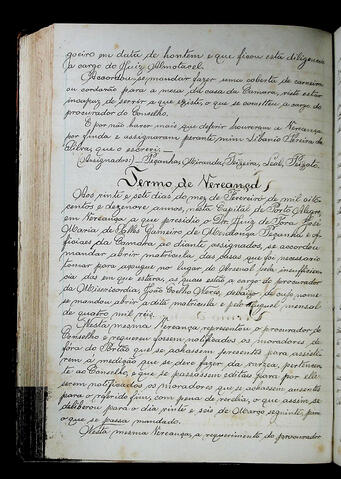 goeiro em data de hontem e que ficou esta diligencia
a cargo do Juiz Almotacel.
Accordou-se mandar fazer uma coberta de carneira
ou cordavão para a meza da casa da Camara, visto estar
incapaz de servir a que existe, o que se constitue a cargo do
procurador do Conselho.
E por não haver mais que deferir houveram a Vereança
por finda e assignaram perante mim Libanio Pereira da
Silva, que o escrevi.
Assignados: Peçanha, Miranda, Teixeira, Leal,
Termo de Vereança
Aos vinte e sete dias do mez de Fevereiro de mil oito
centos e dezenove annos, nesta Capital de Porto Alegre,
em Vereança a que presidio o Dr. Juiz de Fora José
Maria de Salles Gameiro de Mendonça Peçanha e of-
ficiaes da Camara ao diante assignados, se accordou
mandar abrir matricula das casas que foi necessario
tomar para açougue no lugar do Arsenal pela insufficien
cia das em que estava, as quaes estão a cargo do procurador
da Misericordia, João Coelho Neves, debaixo de cujo nome
se mandou abrir a dita matricula e pelo aluguel mensal
de quatro mil réis.
Nesta mesma Vereança representou o procurador do
Conselho e requereu fossem notificados os moradores de
fóra do Portão que se achassem presentes para assisti-
rem á medição que se deve fazer da varzea, pertencen-
te ao Conselho, e que se passassem editaes para por elle
serem notificados os moradores que se achassem ausentes
para o referido fim, com pena de revelia, o que assim se
deliberou para o dia vinte e seis de Março seguinte, para
o que se passa mandado.
Nesta mesma Vereança, a requerimento do procurador